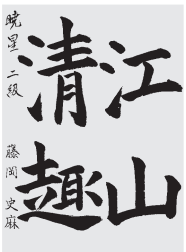 江山
清趣
暁星 二級 藤岡 史麻